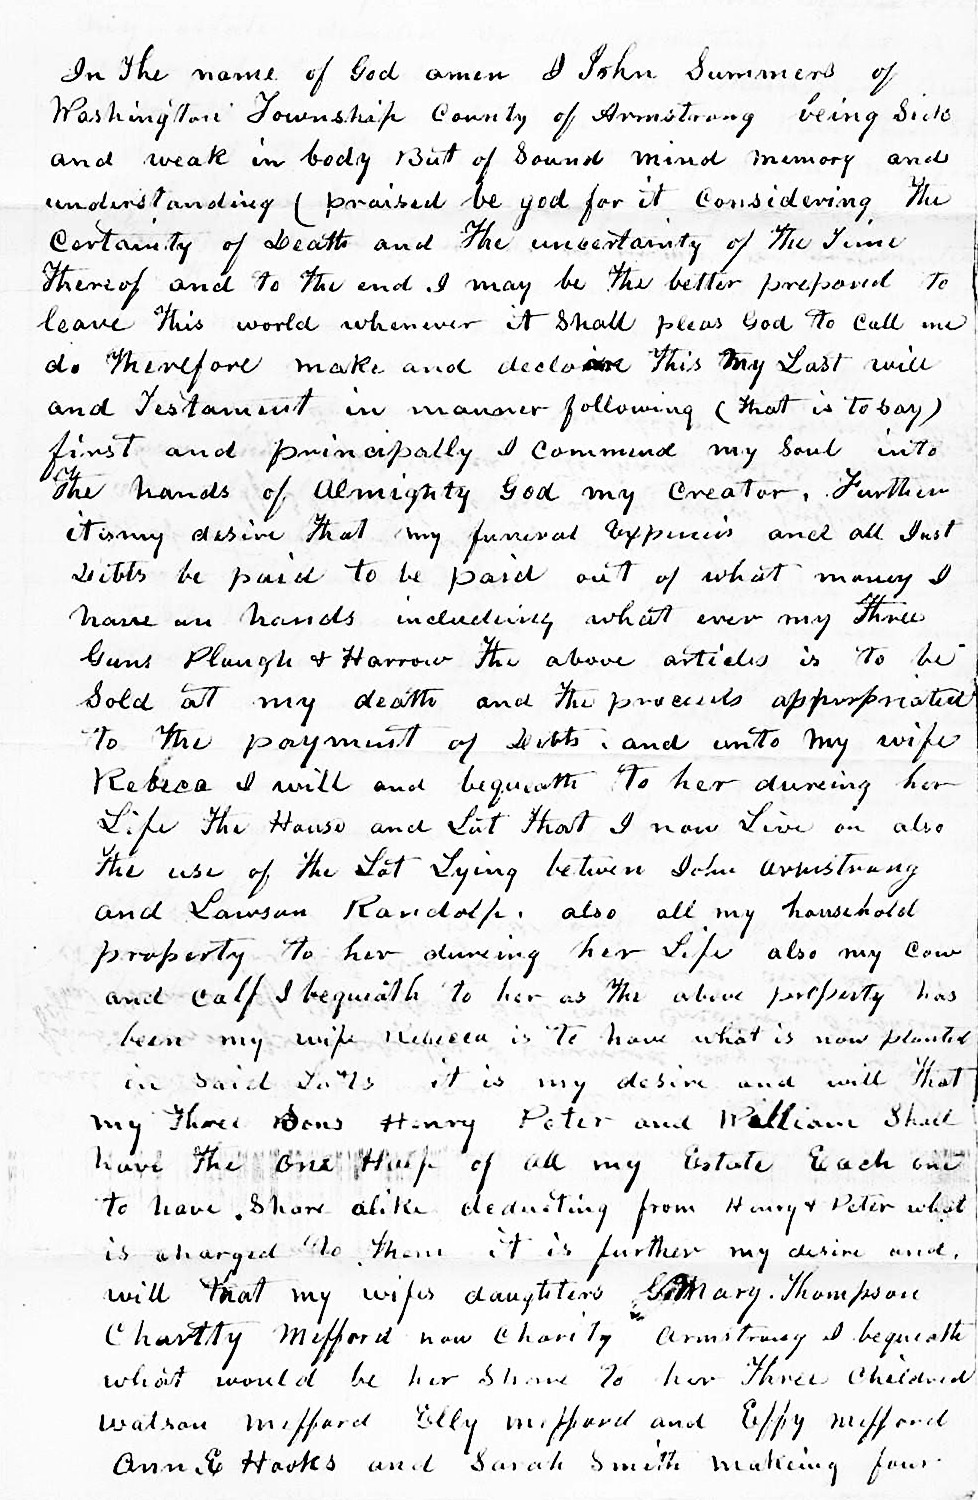 In The name of God amen I John Summers of
Washington Township County of Armstrong being Sick
and weak in body But of Sound mind memory and
understanding ( praised be god for it Considering The
Certainity of Death and The uncertainity of The Time
Thereof and to The end I may be The better prepared to
leave This world whenever it Shall pleas God to Call me
do Therefore make and declare This My Last will
and Testament in manner following ( That is to Say )
first and principally I Commend my Soul into
The hands of Almighty God my Creator, Further
it is my desire That my funeral Expencis and all Just
Debts be paid to be paid out of what money I
have on hands includeing what ever my Three
Guns Plough & Harrow The above articles is to be
Sold at my death and The proceeds appropriated
to The payment of Debts. and unto My wife
Rebeca I will and bequeath to her dureing her
Life The House and Lot That I now Live on also
The use of The Lot Lying between John Armstrong
and Lawson Randolph. also all my household
property to her dureing her Life also my Cow
and Calf I bequeath to her as The above property has
been my wife Rebecca is to have what is now planted
in Said Lotts it is my desire and will That
my Three Sons Henry Peter and William Shall
have The One Half of all my Estate Each one
to have Share alike deducting from Henry & Peter what
is charged to Them it is further my desire and
will That my wifes daughters Mary. Thompson
Charity Mefford now Charity Armstrong I bequeath
what would be her Share to her Three Children
Watson Mefford Elly Mefford and Effy Mefford
Ann E Hooks and Sarah Smith makeing four